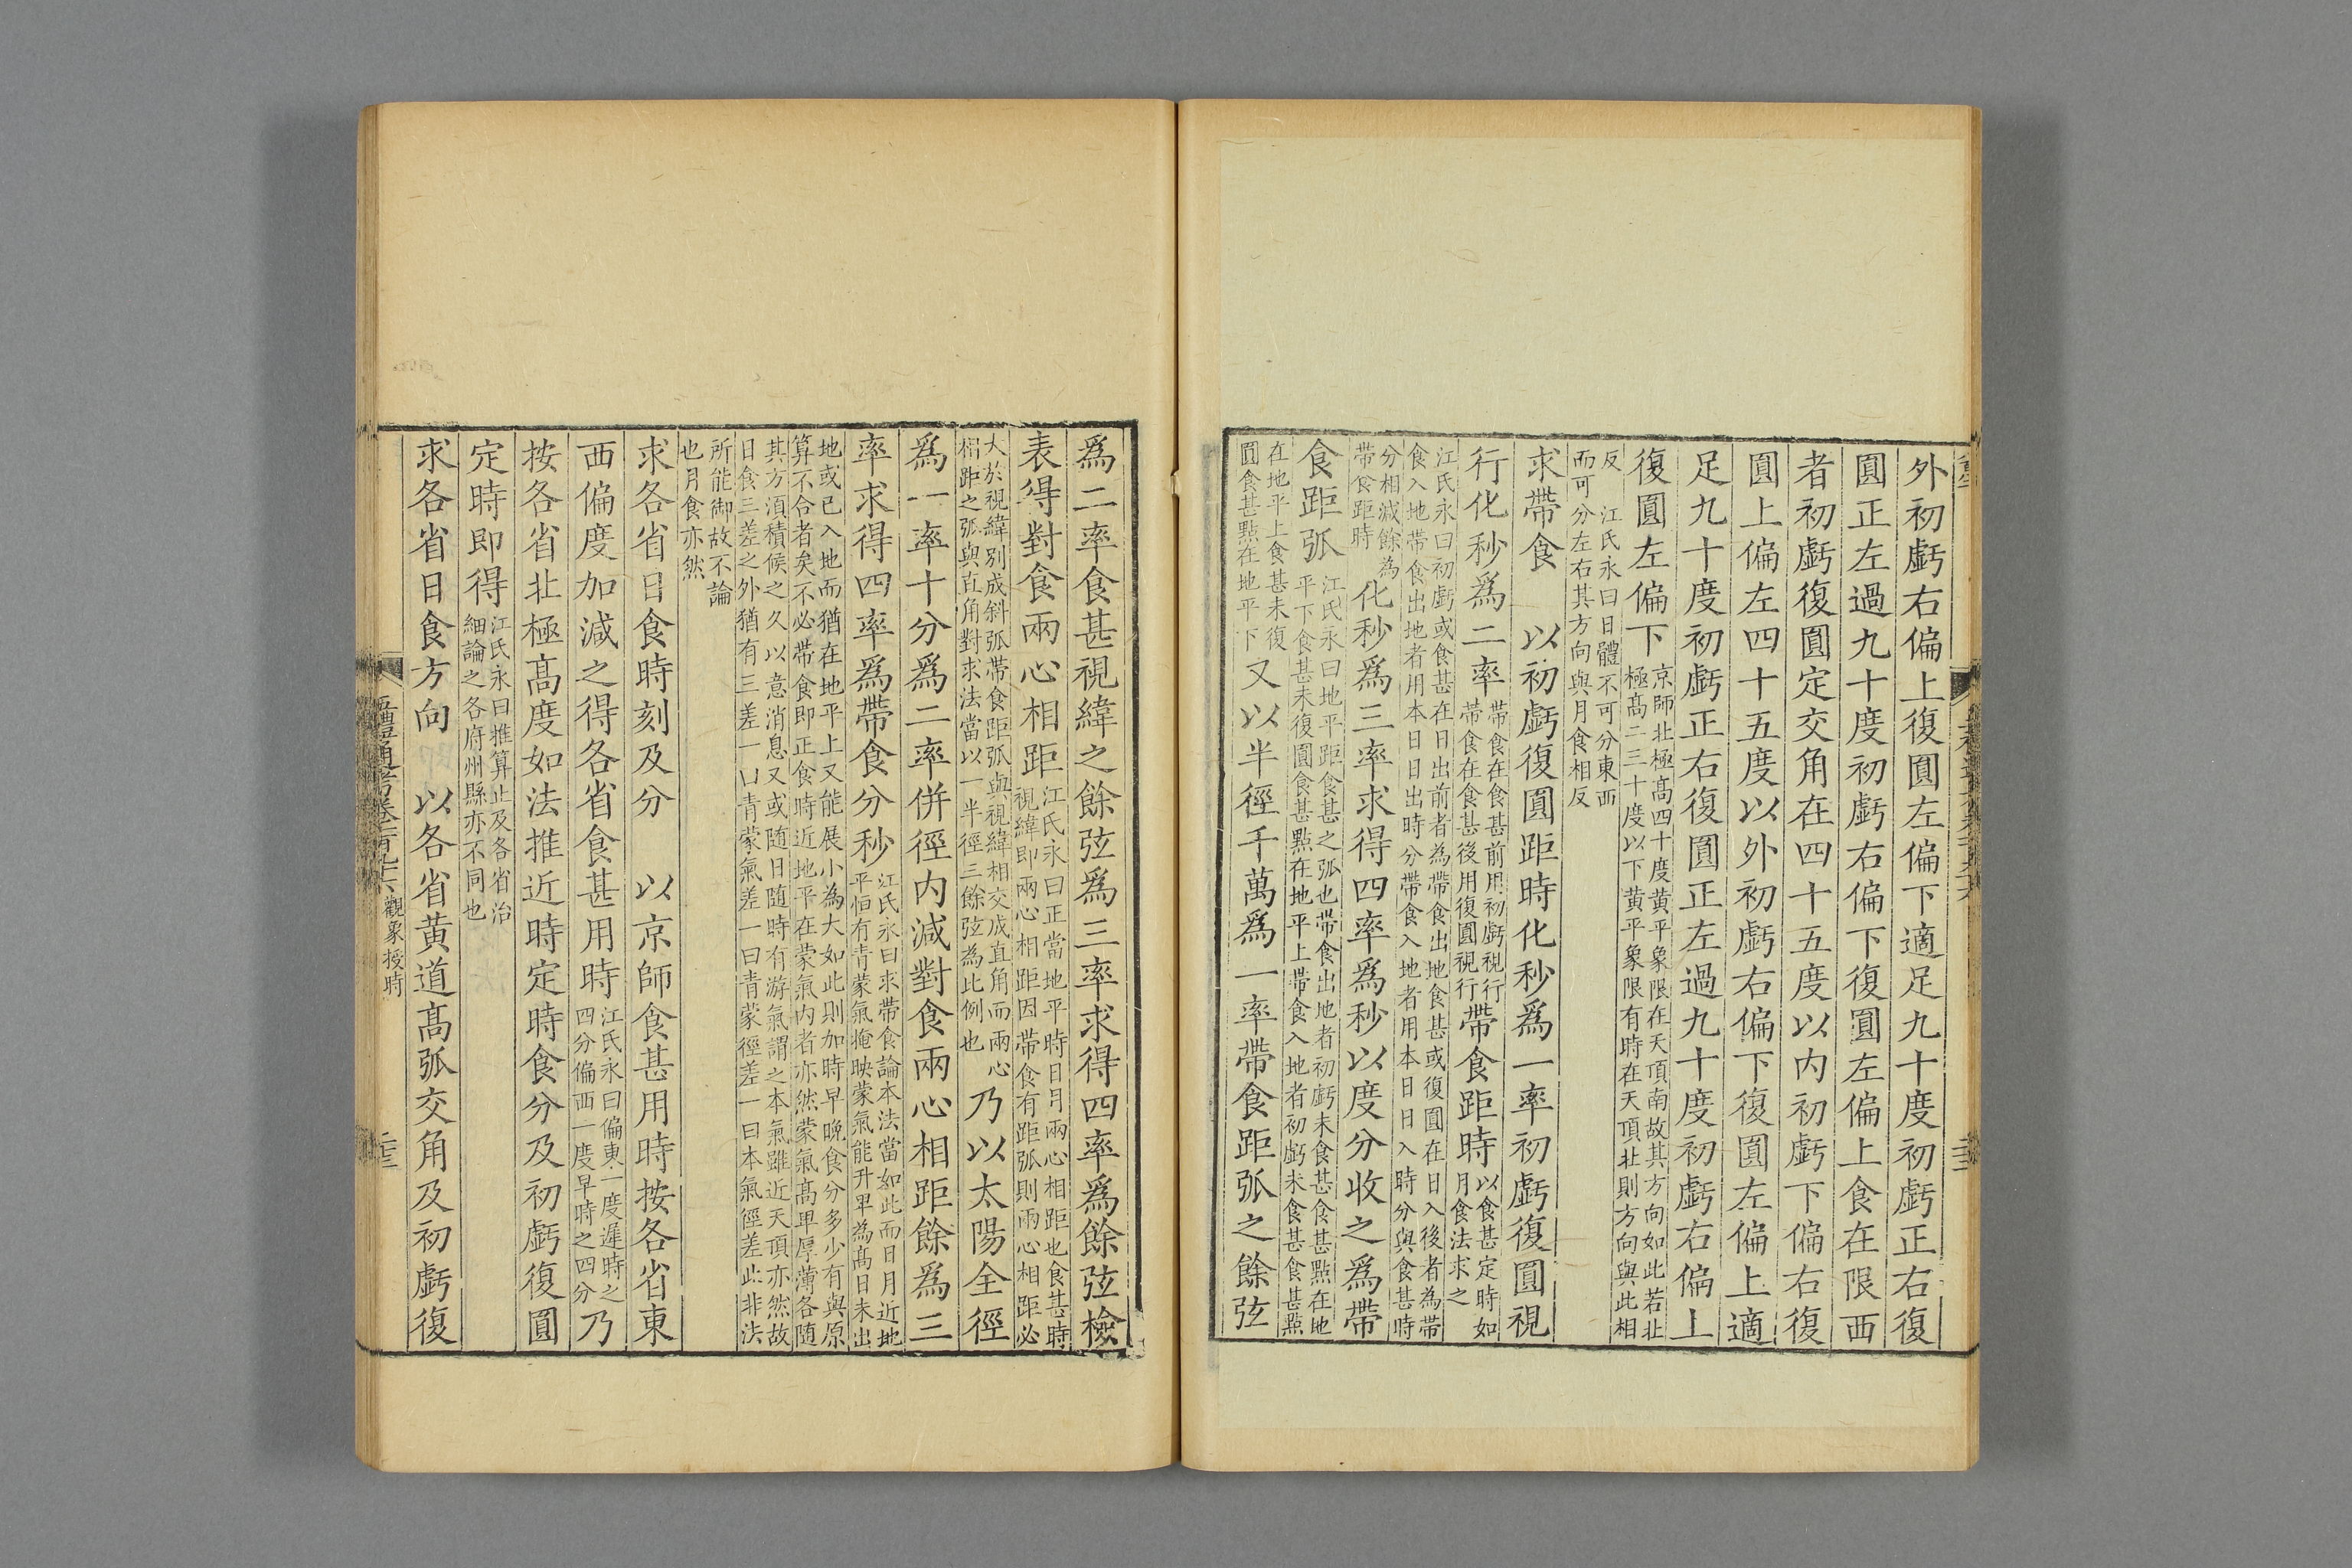 外初虧右偏上復圓左偏下適足九十度初虧正右復
圓正左過九十度初虧右偏下復圓左偏上食在限西
者初虧復圓定交角在四十五度以内初虧下偏右復
圓上偏左四十五度以外初虧右偏下復圓左偏上適
足九十度初虧正右復圓正左過九十度初虧右偏上
復圓左偏下
京師北極高四十度黃平象限在天頂南故其方向如此若北
極高二三十度以下黃平象限有時在天頂北則方向與此相
反　江氏永曰日體不可分東西
而可分左右其方向與月食相反
求帶食　以初虧復圓距時化秒爲一率初虧復圓視
行化秒爲二率
帶食在食甚前用初虧視行
帶食在食甚後用復圓視行
帶食距時
以食甚定時如
月食法求之
江氏永曰初虧或食甚在日出前者為帶食出地食甚或復圓在日入後者為帶
食入地帶食出地者用本日日出時分帶食入地者用本日日入時分與食甚時
分相減餘為
帶食距時
化秒爲三率求得四率爲秒以度分收之爲帶
食距弧
江氏永曰地平距食甚之弧也帶食出地者初虧未食甚食甚點在地
平下食甚未復圓食甚點在地平上帶食入地者初虧未食甚食甚點
在地平上食甚未復
圓食甚點在地平下
又以半徑千萬爲一率帶食距弧之餘弦
爲二率食甚視緯之餘弦爲三率求得四率爲餘弦檢
表得對食兩心相距
江氏永曰正當地平時日月兩心相距也食甚時
視緯即兩心相距因帶食有距弧則兩心相距必
大於視緯别成斜弧帶食距弧與視緯相交成直角而兩心
相距之弧與直角對求法當以一半徑三餘弦為此例也
乃以太陽全徑
爲一率十分爲二率併徑内減對食兩心相距餘爲三
率求得四率爲帶食分秒
江氏永曰求帶食論本法當如此而日月近地
平恒有青蒙氣掩映蒙氣能升卑為高日未出
地或已入地而猶在地平上又能展小為大如此則加時早晚食分多少有與原
算不合者矣不必帶食即正食時近地平在蒙氣内者亦然蒙氣高卑厚薄各隨
其方須積候之久以意消息又或隨日隨時有游氣謂之本氣雖近天頂亦然故
日食三差之外猶有三差一曰青蒙氣差一曰青蒙徑差一曰本氣徑差此非法
所能御故不論
也月食亦然
求各省日食時刻及分　以京師食甚用時按各省東
西偏度加減之得各省食甚用時
江氏永曰偏東一度遲時之
四分偏西一度早時之四分
乃
按各省北極高度如法推近時定時食分及初虧復圓
定時即得
江氏永曰推算止及各省治
細論之各府州縣亦不同也
求各省日食方向　以各省黃道高弧交角及初虧復
五禮通考卷一百九十六　觀象授時
二十三